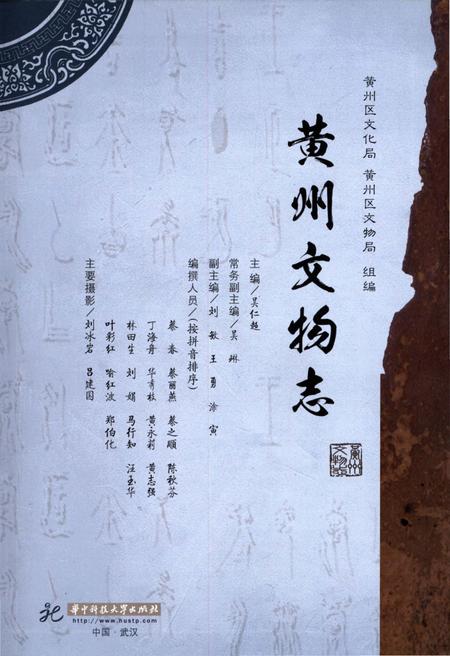 黄州区文化局 黄州区文物局 组编
黄州文物志
主编/吴仁超
常务副主编/吴琳
副主编/刘敏 王勇 涂寅
编撰人员/(按拼音排序)
蔡春 蔡丽燕 蔡之顺 陈秋芬
丁海舟 华育枝 黄永莉 黄志强
林田生 刘娟 马行知 汪玉华
叶彩红 喻红波 郑伯化
主要摄影/刘冰岩 吕建国
华中科技大学出版社
http://www.hustp.com
中国·武汉